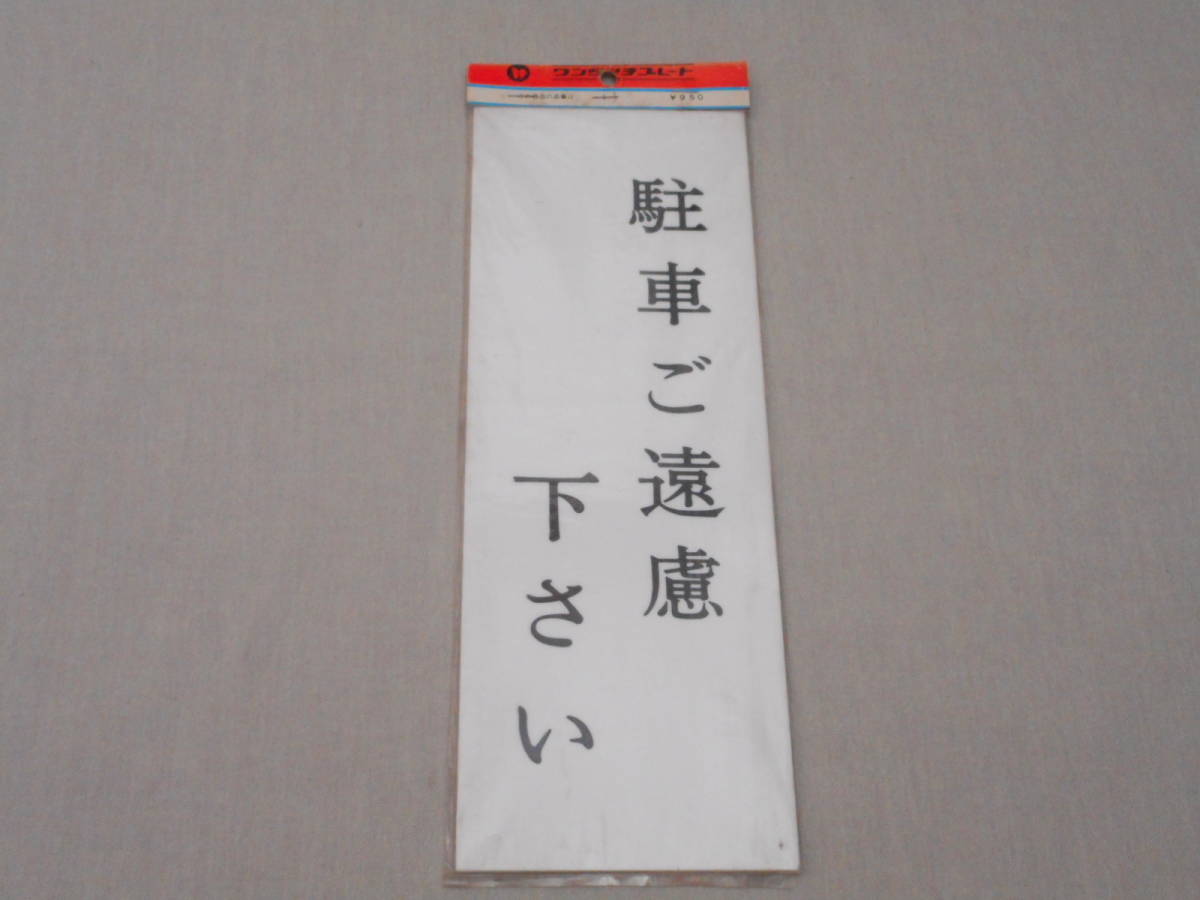 ワンタッチプレート
駐車ご遠慮
下さい